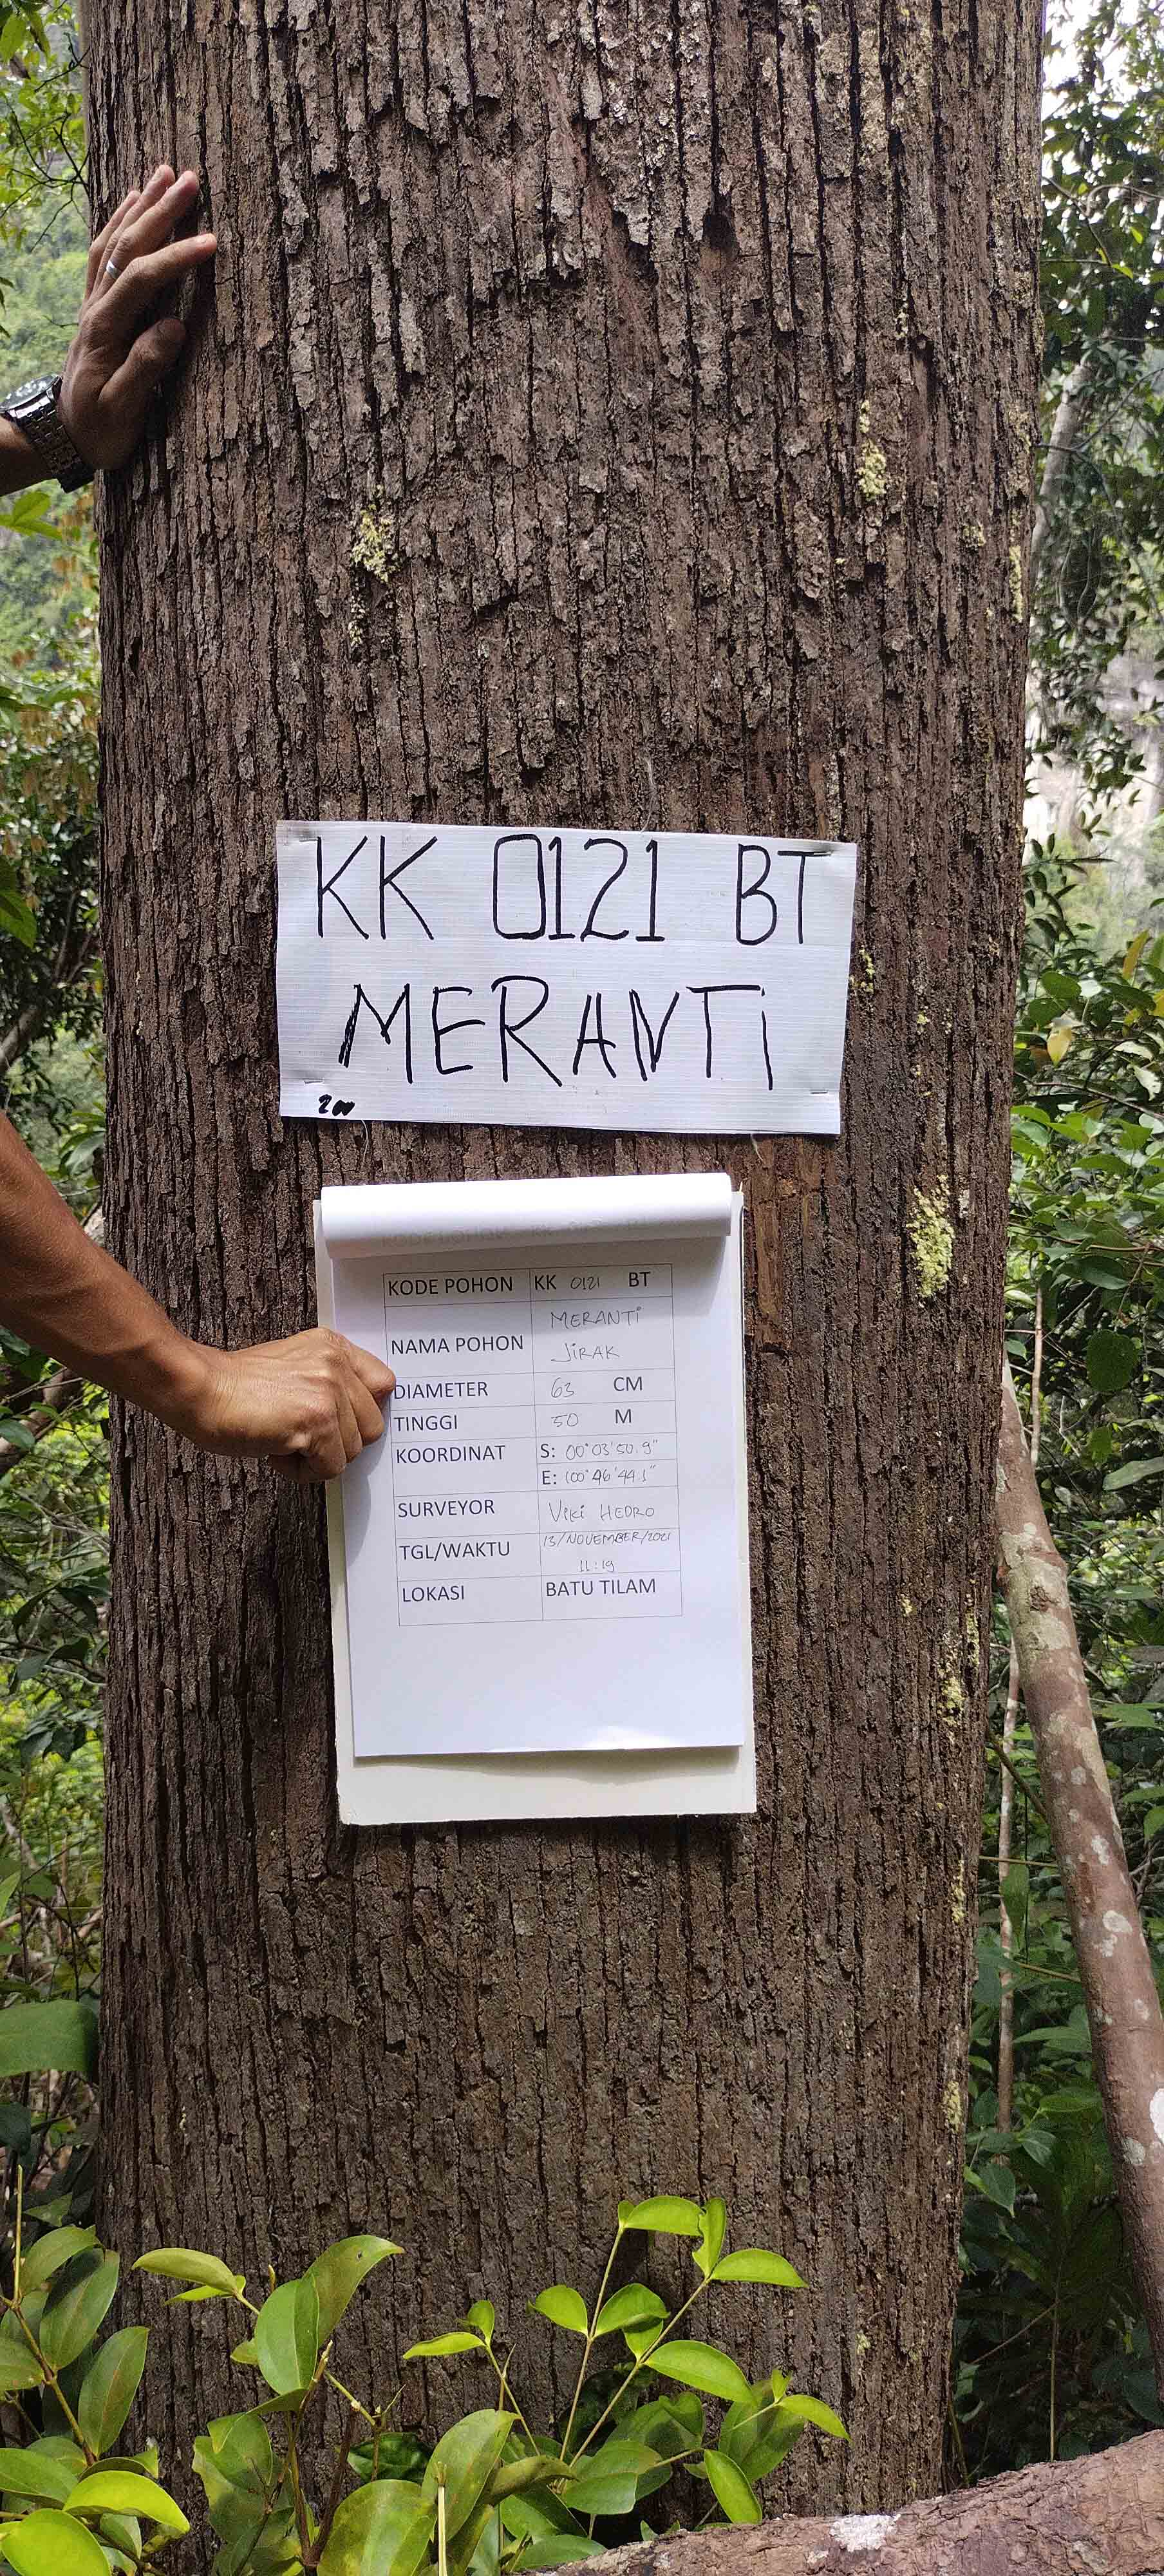 KK 0121 BT
MERANTi
200
KODE POHON KK 0121 BT
NAMA POHON MERANTi
JiRAK
DIAMETER 63 CM
TINGGI 50 M
KOORDINAT S: 00°03'50.9"
E: 100°46'44.1"
SURVEYOR Viki HEDRO
TGL/WAKTU 13/NOVEMBER/2021
11:19
LOKASI BATU TILAM